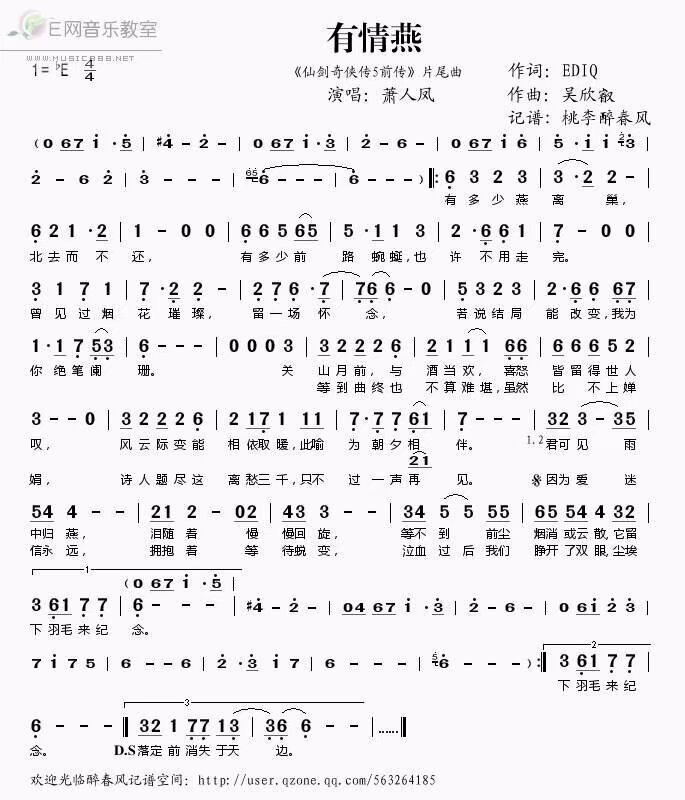 E网音乐教室
www.music888.net
有情燕
1=♭E 4/4
《仙剑奇侠传5前传》片尾曲
作词：EDIQ
演唱：萧人凤
作曲：吴欣叡
记谱：桃李醉春风
(0 67 1·5 | #4-2- | 0 67 1·3 | 0 67 1·6 | 5·1 1 3
2-6 2 | 3--- | 6--- | 6---) ‖: 6 3 2 3 | 3·2 2-
有多少燕 离 巢，
6 2 1·2 | 1-0 0 | 6 6 5 65 | 5·1 1 3 | 2 2 2 1 | 1-0 0
北去而 不 还， 有多少前 路 蜿蜒，也 许 不用走 完。
3 1 7 1 | 7·2 2- | 2 7 6·7 | 7 6 6-0 | 5 3 2 3 | 2·6 6 67
曾见过烟 花 璀璨， 留一场 怀 念， 若说结局 能 改变，我为
1·1 7 53 | 6--- | 0 0 0 3 | 3 2 2 2 6 | 2 1 1 1 66 | 6 6 6 5 2
你 绝笔阑 珊。 关 山月前，与 酒当欢，喜怒 皆留得世人
等到曲终也 不算难堪，虽然 比 不上婵
3--0 | 3 2 2 2 6 | 2 17 1 11 | 7·7 7 61 | 7--- | 32 3-35
叹， 风云际变能 相依取暖，此喻 为 朝夕相 伴。 1.2 君可见 雨
21
娟， 诗人题尽这 离愁三千，只不 过 一声再 见。 因为爱 迷
54 4-- | 21 2-02 | 43 3-- | 34 5 5 55 | 65 54 4 32
中归燕， 泪随着 慢 慢回旋， 等不 到 前尘 烟消或云散，它留
信永远， 拥抱着 等 待蜕变， 泣血 过 后我们 睁开了双眼，尘埃
1
(0 67 1·5
3 61 7 7 | 6--- | #4-2- | 04 67 1·3 | 2-6- | 0 61 2 3
下羽毛来纪 念。
2
7 1 7 5 | 6--6 | 2·3 1 7 | 6--- | 6---) :‖ 3 61 7 7
下羽毛来纪
3
6--- ‖ 32 1 77 13 | 3 6 6-- | ……]
念。 D.S落定前消失于天 边。
欢迎光临醉春风记谱空间：http://user.qzone.qq.com/563264185